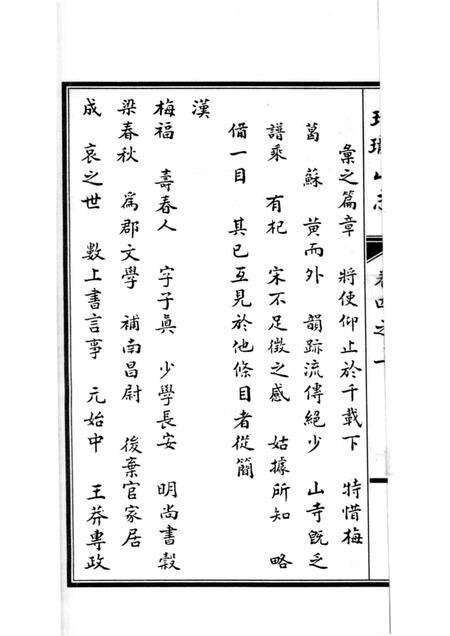 彙之篇章 將使仰止於千載下 特惜梅
葛 蘇 黄而外 韻跡流傳絕少 山寺既乏
譜乘 有杞 宋不足徵之感 姑據所知 略
備一目 其已互見於他條目者從簡
漢
梅福 壽春人 字子眞 少學長安 明尚書穀
梁春秋 爲郡文學 補南昌尉 後棄官家居
成 哀之世 數上書言事 元始中 王莽專政